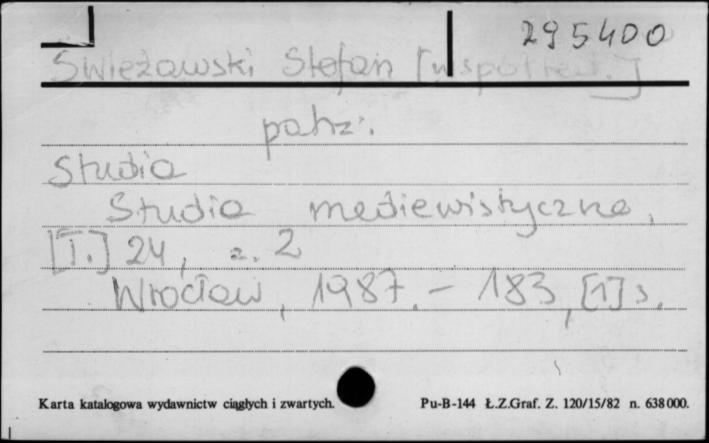 295400
Swieżawski Stefan [współred.]
patrz:
Studia
Studia mediewistyczne,
[T.] 24, z. 2
Wrocław, 1987. – 183, [1] s.
Karta katalogowa wydawnictw ciągłych i zwartych. Pu-B-144 Ł.Z.Graf. Z. 120/15/82 n. 638000.